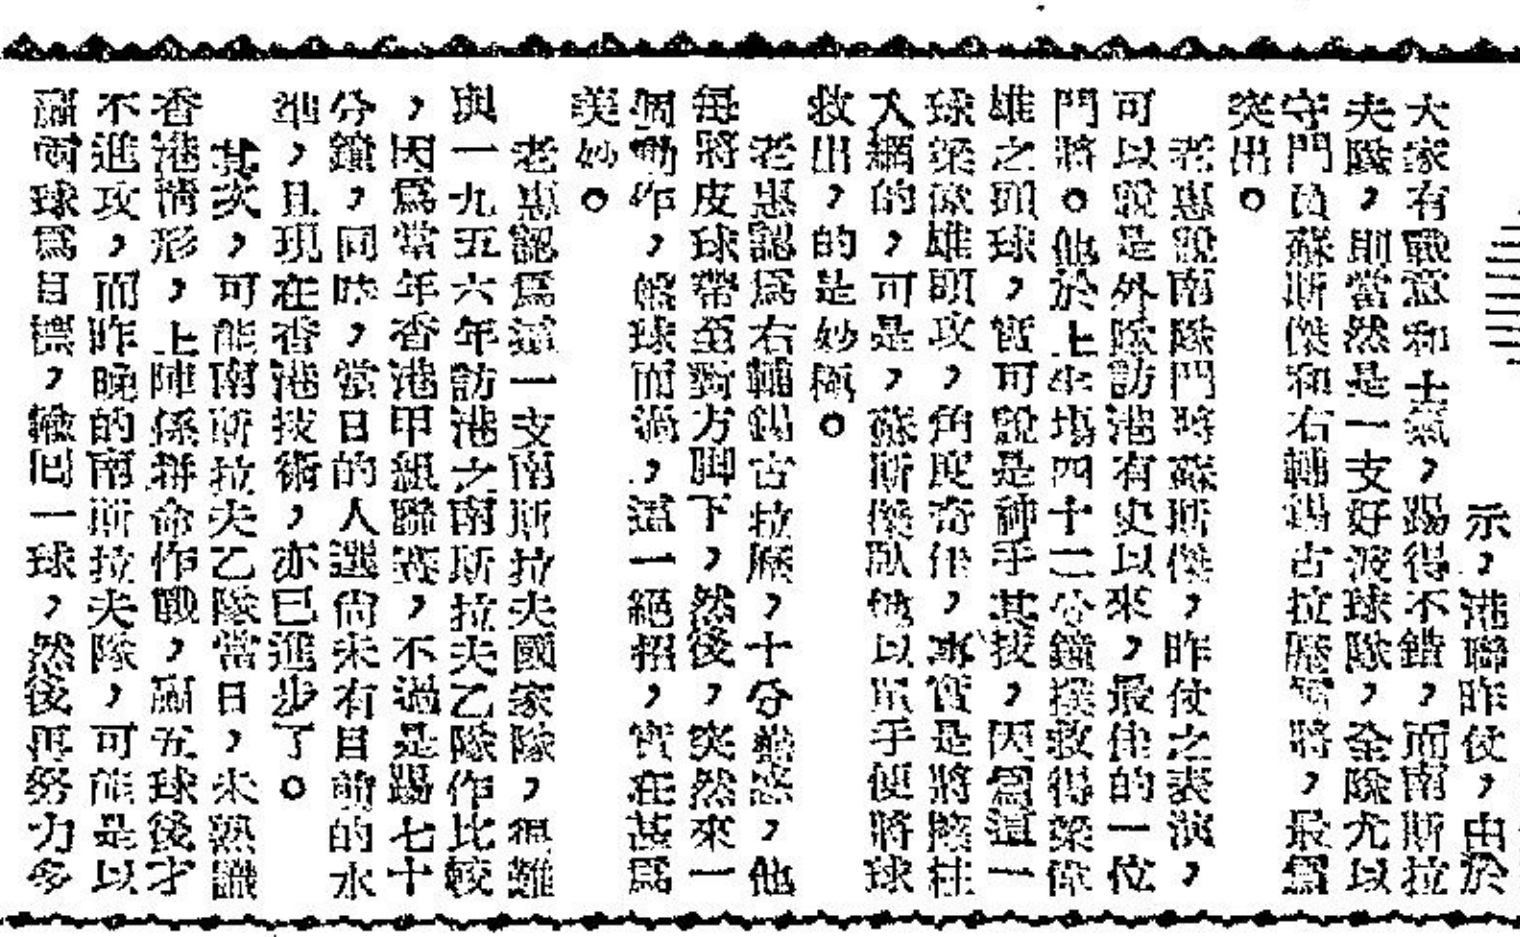 示，港聯昨仗，由於
大家有戰意和士氣，踢得不錯，而南斯拉
夫隊，則當然是一支好波球隊，全隊尤以
守門員蘇斯傑和右輔錫古拉歷兩將，最爲
突出。
老惠說南隊門將蘇斯傑，昨仗之表演，
可以說是外隊訪港有史以來，最佳的一位
門將。他於上半場四十二分鐘撲救得梁偉
雄之頭球，實可說是神手其技，因爲這一
球梁偉雄頭攻，角度奇佳，事實是將險柱
入網的，可是，蘇斯傑臥地以單手便將球
救出，的是妙極。
老惠認爲右輔錫古拉歷，十分難惹，他
每將皮球帶至對方脚下，然後，突然來一
個動作，盤球而過，這一絕招，實在甚爲
美妙。
老惠認爲這一支南斯拉夫國家隊，很難
與一九五六年訪港之南斯拉夫乙隊作比較
，因爲當年香港甲組聯賽，不過是踢七十
分鐘，同時，當日的人選尙未有目前的水
準，且現在香港技術，亦已進步了。
其次，可能南斯拉夫乙隊當日，未熟識
香港情形，上陣係拼命作戰，贏五球後才
不進攻，而昨晚的南斯拉夫隊，可能是以
贏兩球爲目標，輸回一球，然後再努力多